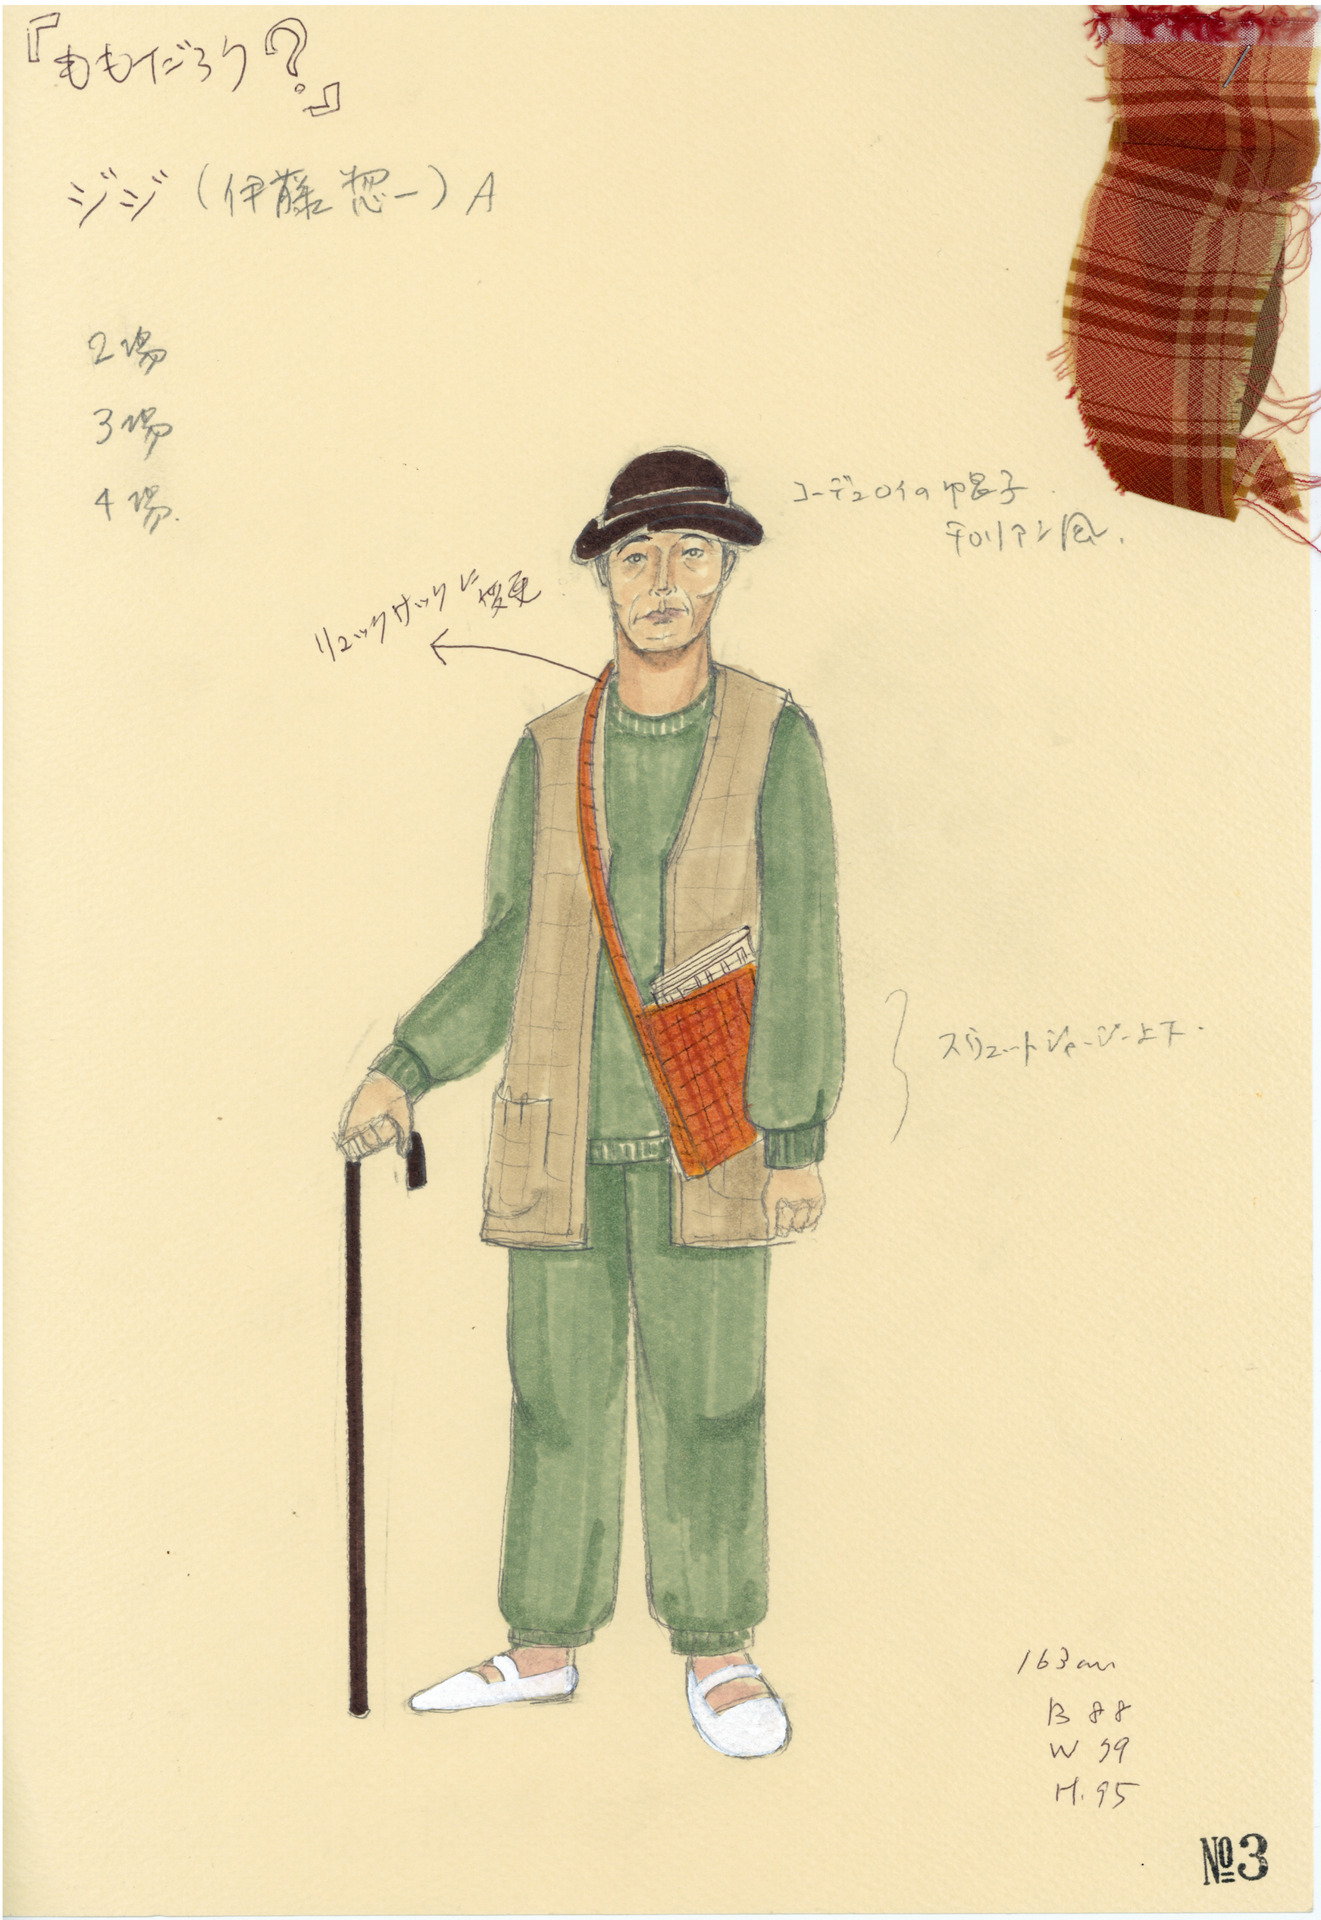 『ももだろう?』
ジジ(伊藤惣一)A
2場
3場
4場.
コーデュロイの帽子
チロリアン風.
リュックサックに変更
スウェートジャージー上下.
163cm
B 88
W 79
H. 95
№3